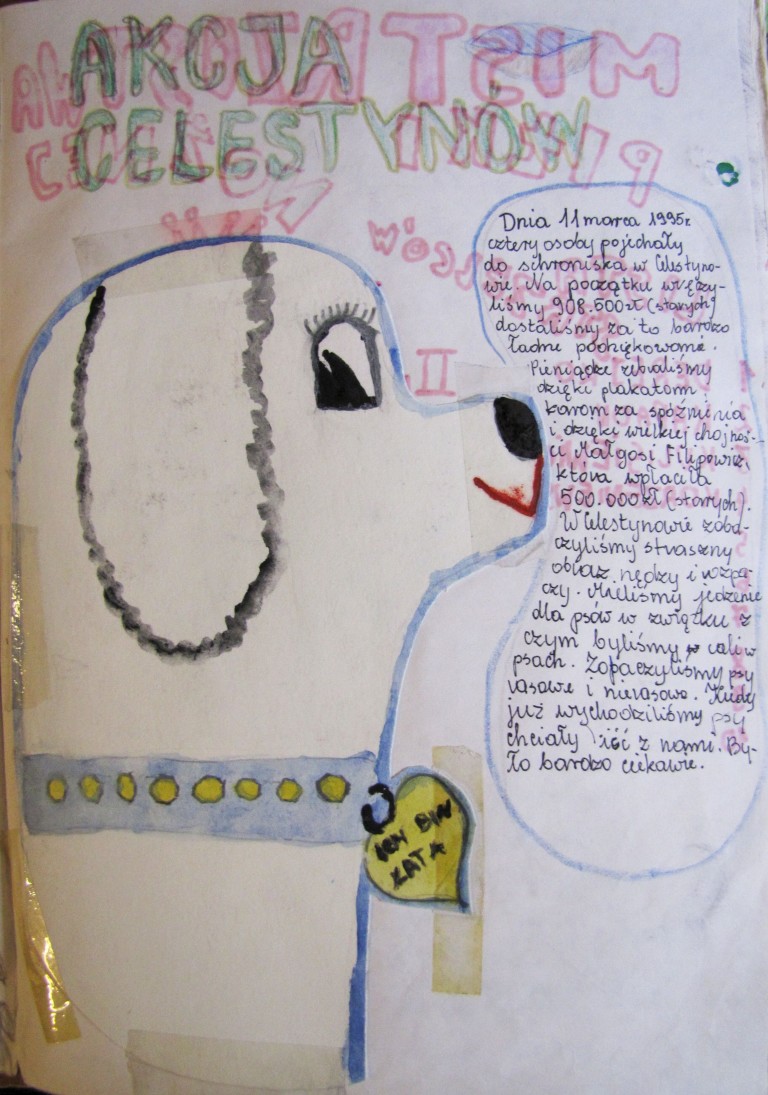 AKCJA
CELESTYNÓW
Dnia 11 marca 1995r.
cztery osoby pojechały
do schroniska w Celestyno-
wie. Na początku wręczy-
liśmy 908.500 zł (starych)
dostaliśmy za to bardzo
ładne podziękowanie.
Pieniądze zebraliśmy
dzięki plakatom
karom za spóźnienia
i dzięki wielkiej chojnoś-
ci Małgosi Filipowicz,
która wpłaciła
500.000 zł (starych).
W Celestynowie zoba-
czyliśmy straszny
obraz nędzy i rozpa-
czy. Mieliśmy jedzenie
dla psów w związku z
czym byliśmy cali w
psach. Zobaczyliśmy psy
rasowe i nierasowe. Kiedy
już wychodziliśmy psy
chciały iść z nami. By-
ło bardzo ciekawie.
II
ICH BIN
KATA